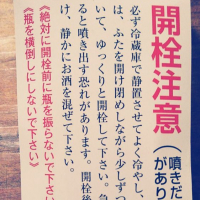 開栓注意
(噴きだ
があり
必ず冷蔵庫で静置させてよく冷やし、
は、ふたを開け閉めしながら少しずつ
いて、ゆっくりと開栓して下さい。急
ると噴き出す恐れがあります。開栓後
け、静かにお酒を混ぜて下さい。
《絶対に開栓前に瓶を振らないで下さい
《瓶を横倒しにしないで下さい》